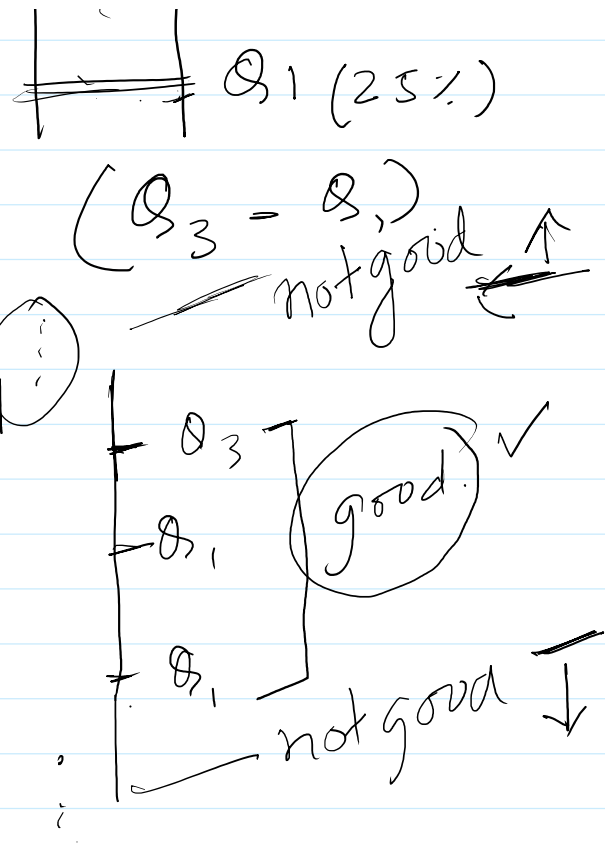 Q1 (25%)
(Q3 - Q1)
not good ↑
Q3
good. ✓
Q1
Q1
not good ↓